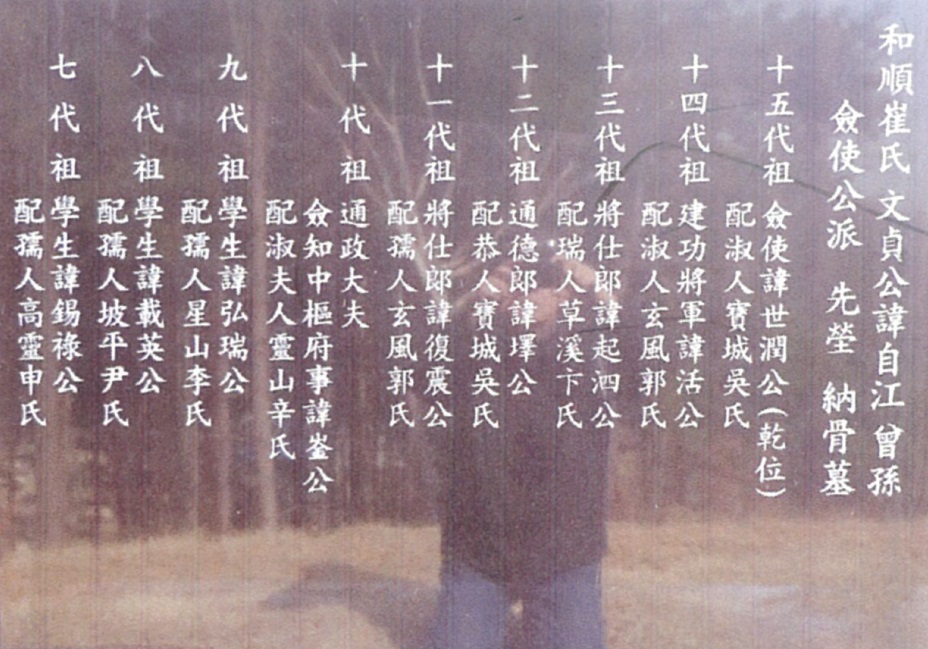 和順崔氏 文貞公諱自江 曾孫
僉使公派 先塋 納骨墓
十五代祖 僉使諱世潤公(乾位)
配淑人寶城吳氏
十四代祖 建功將軍諱活公
配淑人玄風郭氏
十三代祖 將仕郞諱起泗公
配瑞人草溪卞氏
十二代祖 通德郞諱墿公
配恭人寶城吳氏
十一代祖 將仕郞諱復震公
配孺人玄風郭氏
十代祖 通政大夫
僉知中樞府事諱崟公
配淑夫人靈山辛氏
九代祖 學生諱弘瑞公
配孺人星山李氏
八代祖 學生諱載英公
配孺人坡平尹氏
七代祖 學生諱錫祿公
配孺人高靈申氏